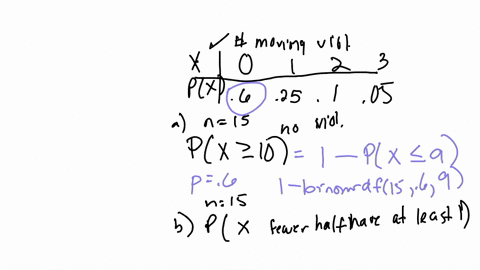 ✓ # moving viol.
X | 0 1 2 3
P(X) | .6 .25 .1 .05
a) n=15 no viol.
P(X ≥ 10) = 1 - P(X ≤ 9)
p=.6 1-binomcdf(15, .6, 9)
n=15
b) P(X fewer half have at least 1)